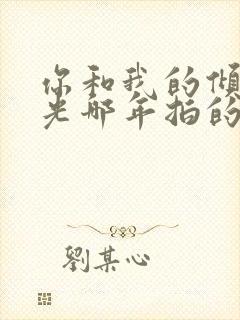 你和我的倾
光那年拍的
劉某心